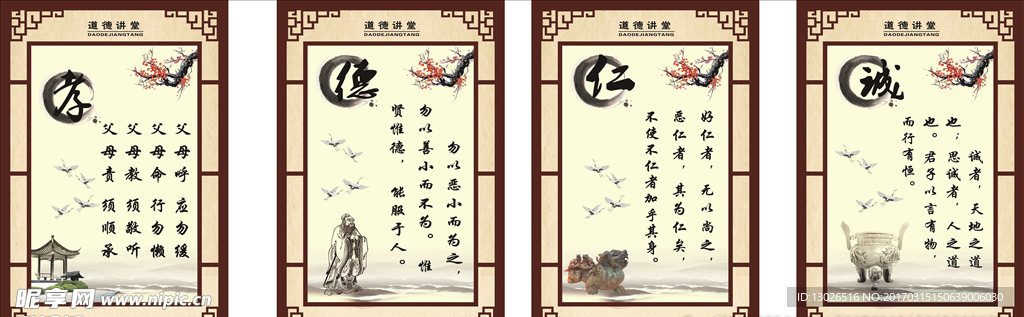 道德讲堂
DAODEJIANGTANG
孝
父母呼 应勿缓
父母命 行勿懒
父母教 须敬听
父母责 须顺承
道德讲堂
DAODEJIANGTANG
德
勿以恶小而为之,
勿以善小而不为。惟
贤惟德, 能服于人。
道德讲堂
DAODEJIANGTANG
仁
好仁者,无以尚之,
恶仁者,其为仁矣,
不使不仁者加乎其身。
道德讲堂
DAODEJIANGTANG
诚
诚者,天地之道
也;思诚者,人之道
也。君子以言有物,
而行有恒。
昵享网 www.nipic.cn
ID:13026516 NO:20170315150639006030